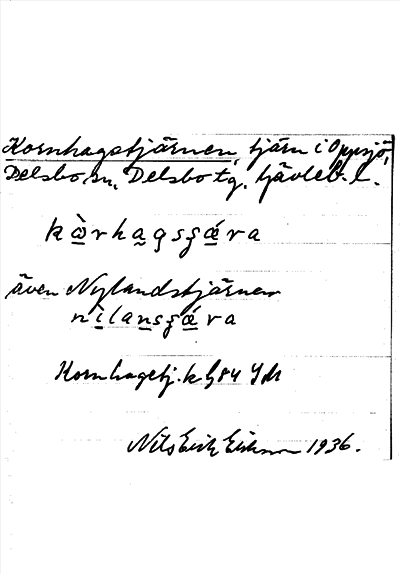 Kornhagstjärnen, tjärn i Oppsjö,
Delsbo sn, Delsbo tg, Gävleb. l.
kὼrhagsʂǽra
även Nylandstjärnen
nílansʂǽra
Kornhagstj. k G84
Nils Erik Eriksson 1936.